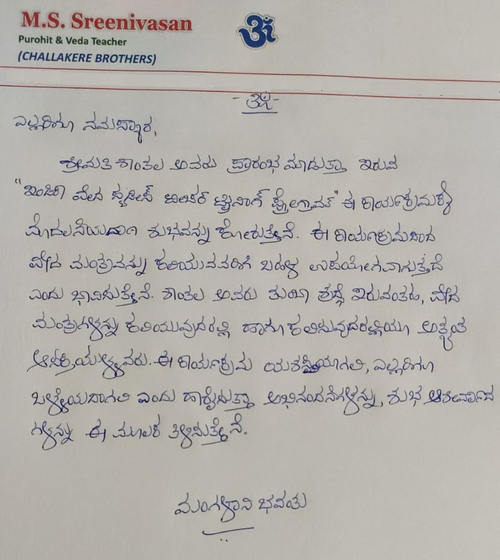 M.S. Sreenivasan
Purohit & Veda Teacher
(CHALLAKERE BROTHERS)
ॐ
- ಓಂ -
ಎಲ್ಲರಿಗೂ ನಮಸ್ಕಾರ,
ಶ್ರೀಮತಿ ಶಾಂತಲ ಅವರು ಪ್ರಾರಂಭ ಮಾಡುತ್ತಾ ಇರುವ
ವೇದ ಟೀಚರ್ ಟ್ರೈನಿಂಗ್ ಪ್ರೋಗ್ರಾಮ್" ಈ ಕಾರ್ಯಕ್ರಮಕ್ಕೆ
ಮೊದಲನೆಯದಾಗಿ ಶುಭವನ್ನು ಕೋರುತ್ತೇನೆ. ಈ ಕಾರ್ಯಕ್ರಮದಿಂದ
ವೇದ ಮಂತ್ರವನ್ನು ಕಲಿಯುವವರಿಗೆ ಬಹಳ ಉಪಯೋಗವಾಗುತ್ತದೆ
ಎಂದು ಭಾವಿಸುತ್ತೇನೆ. ಶಾಂತಲ ಅವರು ತುಂಬಾ ಶ್ರದ್ಧೆ ಇರುವಂತಹ, ವೇದ
ಮಂತ್ರಗಳನ್ನು ಕಲಿಯುವುದರಲ್ಲಿ ಹಾಗೂ ಕಲಿಸುವುದರಲ್ಲಿಯೂ ಅತ್ಯಂತ
ಆಸಕ್ತಿಯುಳ್ಳವರು. ಈ ಕಾರ್ಯಕ್ರಮ ಯಶಸ್ವಿಯಾಗಲಿ, ಎಲ್ಲರಿಗೂ
ಒಳ್ಳೆಯದಾಗಲಿ ಎಂದು ಹಾರೈಸುತ್ತಾ ಅಭಿನಂದನೆಗಳನ್ನು, ಶುಭ ಆಶೀರ್ವಾದ
ಗಳನ್ನು ಈ ಮೂಲಕ ತಿಳಿಸುತ್ತೇನೆ.
ಮಂಗಳಾನಿ ಭವಂತು